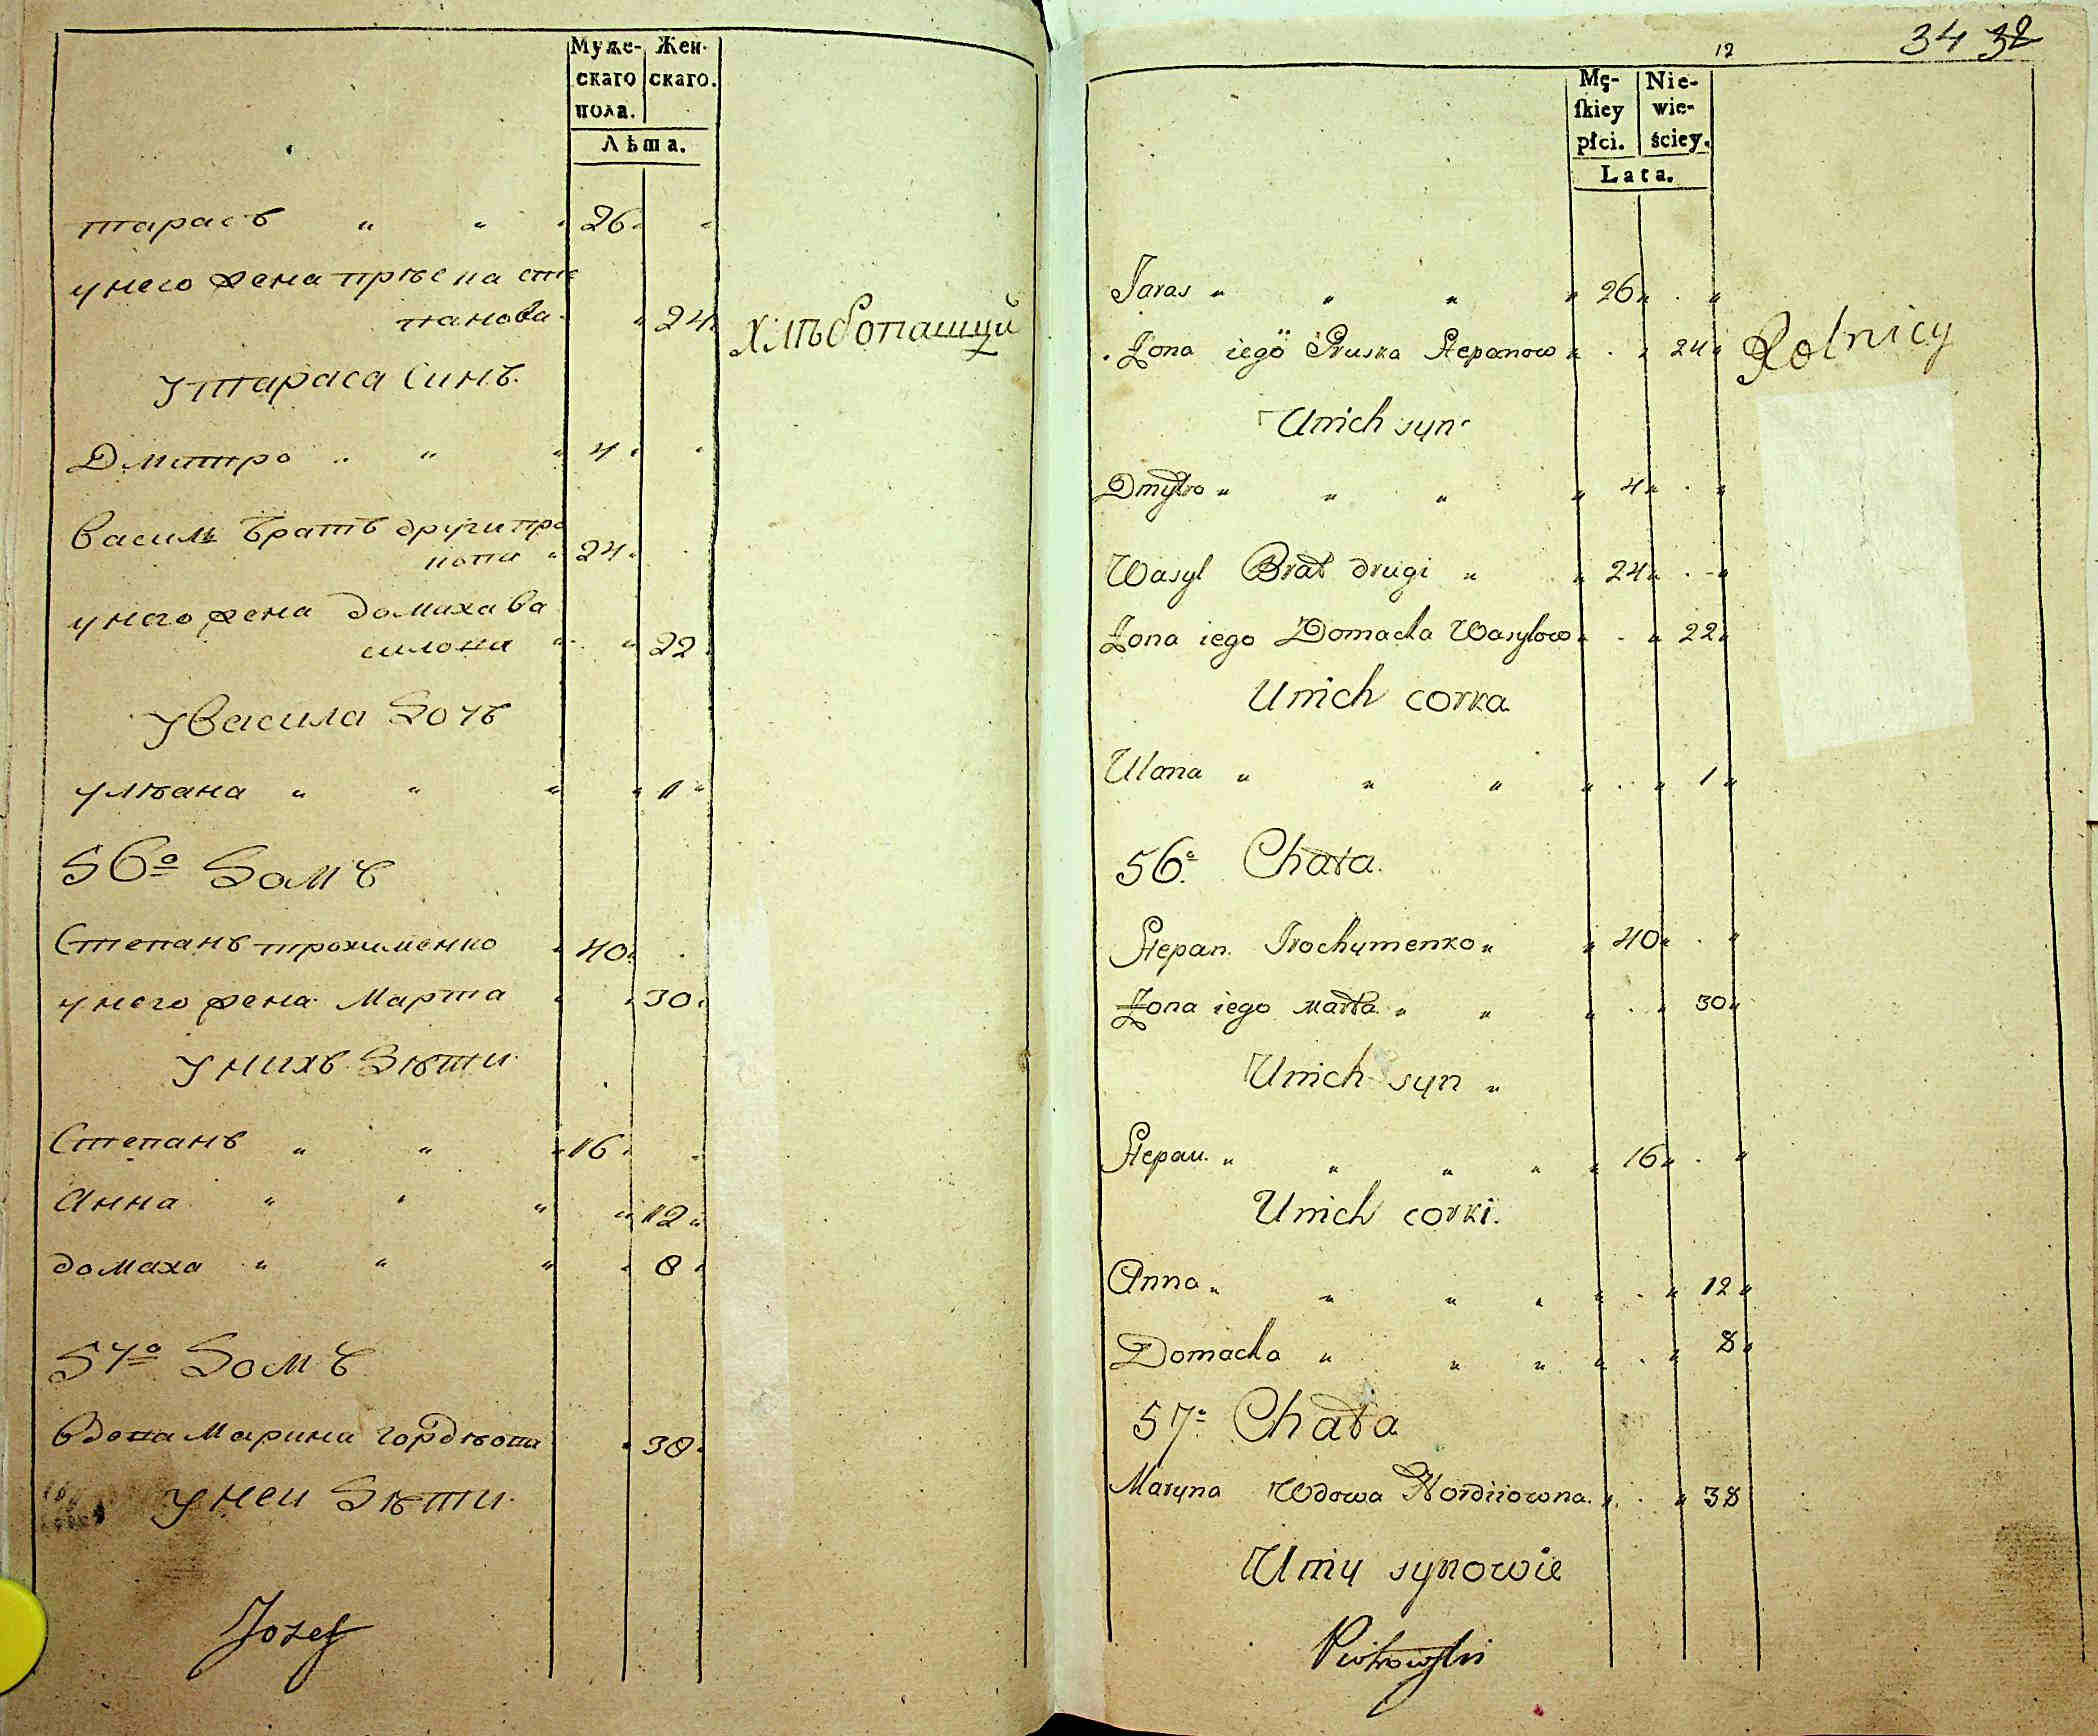 Муже- Жен-
скаго скаго.
пола.
Лѣта.
тарасъ " " " 26 "
у него жена прѣсна сте
панова " 24
Хлѣбопашцй
У тараса Синъ.
Дмитро " " " 4 "
василь братъ други про
копи " 24
у него жена домиха ва
силони " " 22
У васила Дочъ
улѣана " " " " 1 "
56о Домъ
Степанъ трохименко " 40
у него жена Марта " " 30
У нихъ Дѣти
Степанъ " " " 16
Анна " " " " 12 "
домаха " " " " 8
57о Домъ
вдова Марина гордѣова " 38
У неи Дѣти
Jozef
12
34 32
Mę- Nie-
ſkiey wie-
płci. ściey.
Lata.
Taras " " " " 26 " . "
Żona iego Pruska Stepanow " . " 24 "
Rolnicy
U nich syn
Dmytro " " " " 4 " . "
Wasyl Brat drugi " " 24 " . "
Żona iego Domacha Wasylow " . " 22 "
U nich corka
Ulana " " " " . " 1 "
56о Chata
Stepan Trochymenko " " 40 " . "
Żona iego marta " " " . " 30 "
U nich syn "
Stepan " " " " " 16 " . "
U nich corki.
Anna " " " " " . " 12 "
Domacha " " " " . " 8 "
57о Chata
Maryna Wdowa Hordiiowna " . " 38
U niy synowie
Piotrowski